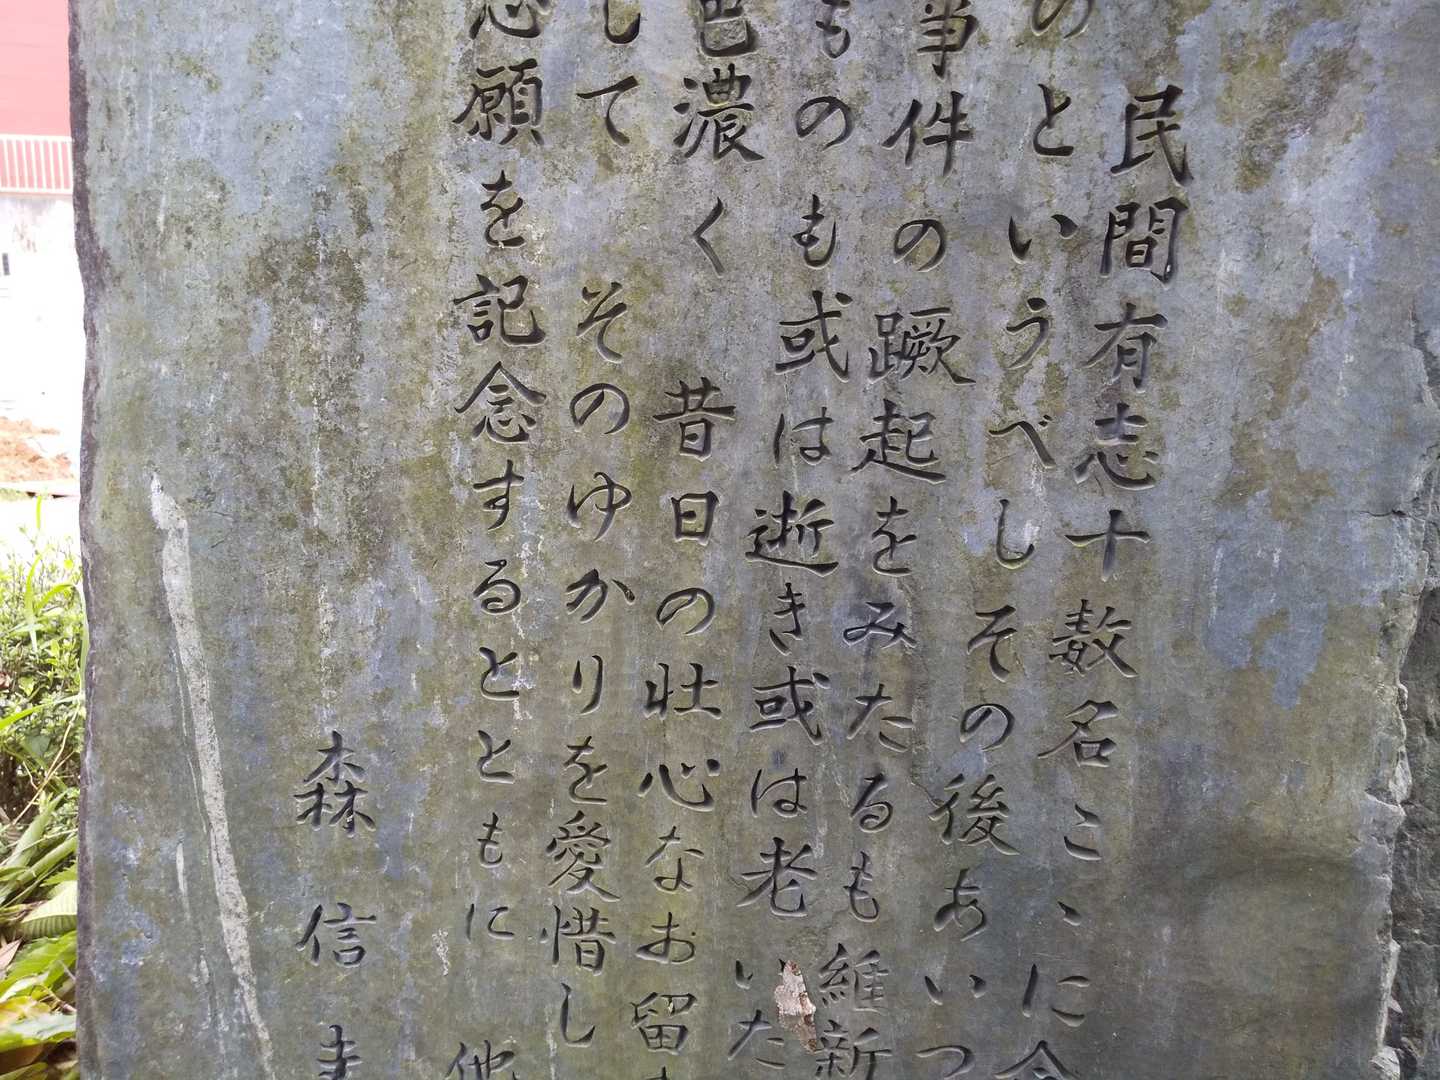 民間有志十数名こゝに会
のというべしその後あいつ
事件の蹶起をみたるも維新
ものも或は逝き或は老いた
色濃く 昔日の壮心なお留
して そのゆかりを愛惜し
念願を記念するとともに 他
森 信